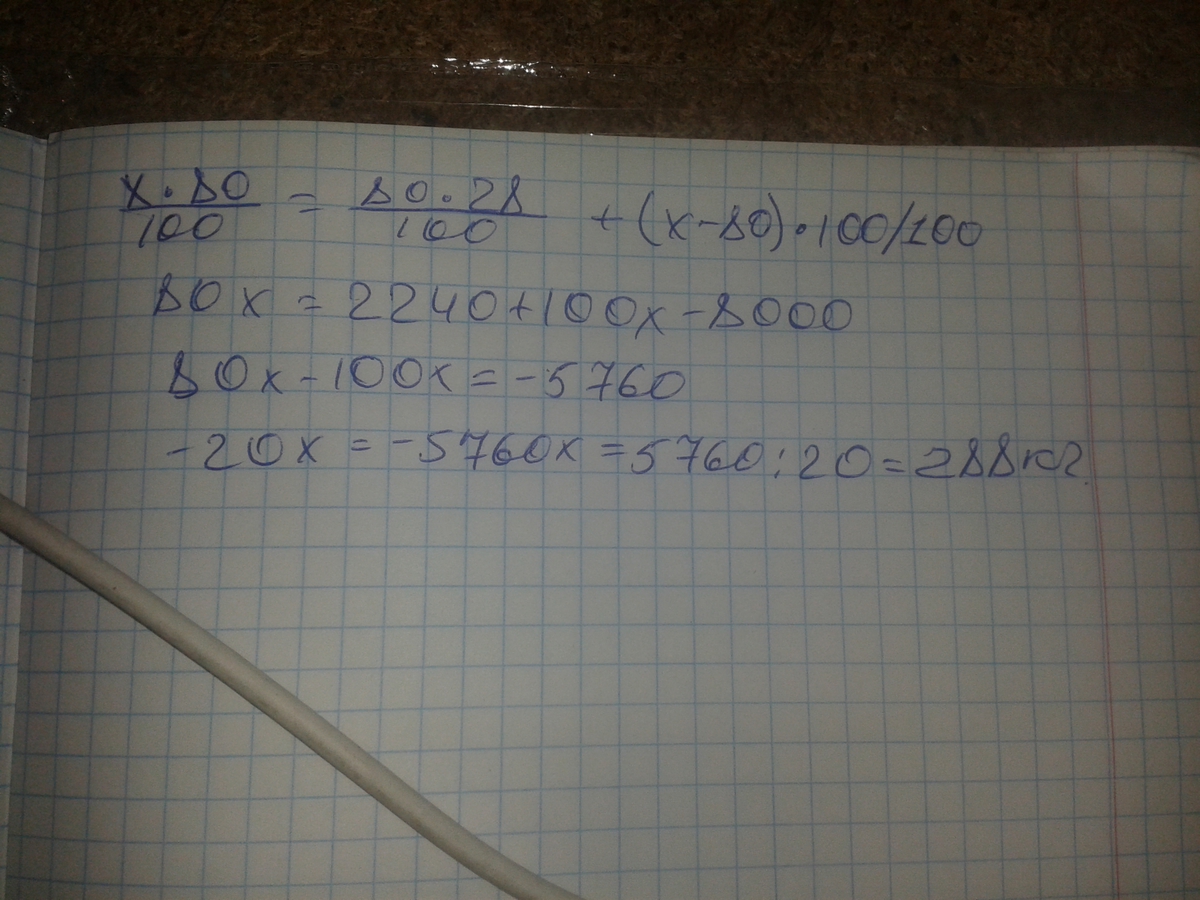 x·80/100 = 80·28/100 + (x-80)·100/100
80x = 2240+100x-8000
80x-100x=-5760
-20x = -5760x =5760:20=288кг.